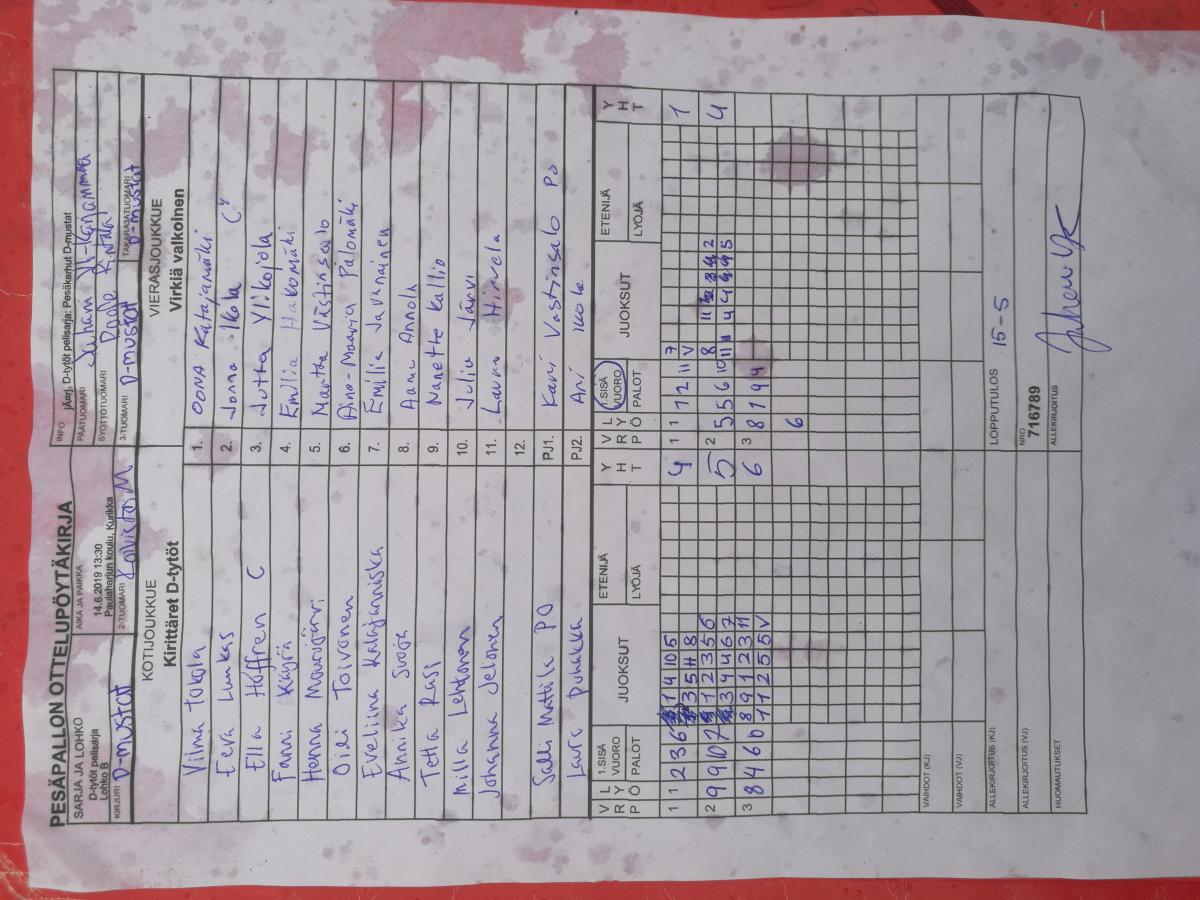 PESÄPALLON OTTELUPÖYTÄKIRJA
SARJA JA LOHKO
D-tytöt pelisarja
Lohko B
AIKA JA PAIKKA
14.6.2019 13:30
Paulaharjun koulu, Kurikka
INFO
jÄorj. D-tytöt pelisarja: Pesäkarhut D-mustat
PÄÄTUOMARI
SYÖTTÖTUOMARI
KIRJURI D-mustat
2-TUOMARI Koivisto M
3-TUOMARI D-mustat
TAKARAJATUOMARI D-mustat
KOTIJOUKKUE
Kirittäret D-tytöt
VIERASJOUKKUE
Virkiä valkoinen
Vilma Tokola 1. OONA Katajamäki
Eeva Lunkas 2. Jonna Ikola C
Ella Hoffren C 3. Jutta Ylikojola
Fanni Käyrä 4. Emilia Hakomäki
Henna Mourujärvi 5. Martta Västinsalo
Oili Toivonen 6. Aino-Maaria Palomäki
Eveliina Kalajanniska 7. Emilia Javanainen
Annika Suoja 8. Aanu Annola
Tetta Rasi 9. Nanette Kallio
Milla Lehtonen 10. Julia Järvi
Johanna Jelonen 11. Laura Hirvela
12.
Salli Mattila PO PJ1. Kari Vastinsalo PO
Laura Puhakka PJ2. Ari Ikola
V R L Y P Ö 1.SISÄ VUORO PALOT JUOKSUT ETENIJÄ LYÖJÄ Y H T V R L Y P Ö 1.SISÄ VUORO PALOT JUOKSUT ETENIJÄ LYÖJÄ Y H T
1 1 2 3 6 1 4 10 5 4 1 1 7 2 11 7 1
3 5 11 8 V
2 9 9 10 7 1 2 3 5 6 5 2 5 5 6 10 8 4
3 4 4 6 7
3 8 4 6 0 8 9 1 2 3 11 6 3 8 1 9 4
1 1 2 5 5 V
6
VAIHDOT (KJ)
VAIHDOT (VJ)
ALLEKIRJOITUS (KJ)
LOPPUTULOS 15-5
ALLEKIRJOITUS (VJ)
NRO
716789
HUOMAUTUKSET
ALLEKIRJOITUS